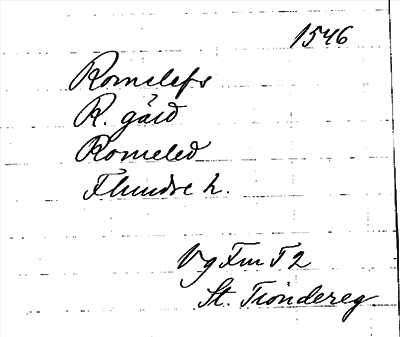 1546
Romelefs
R. gård
Romeled
Flundre h.
Vg Fm F 2
St. Tröndereg